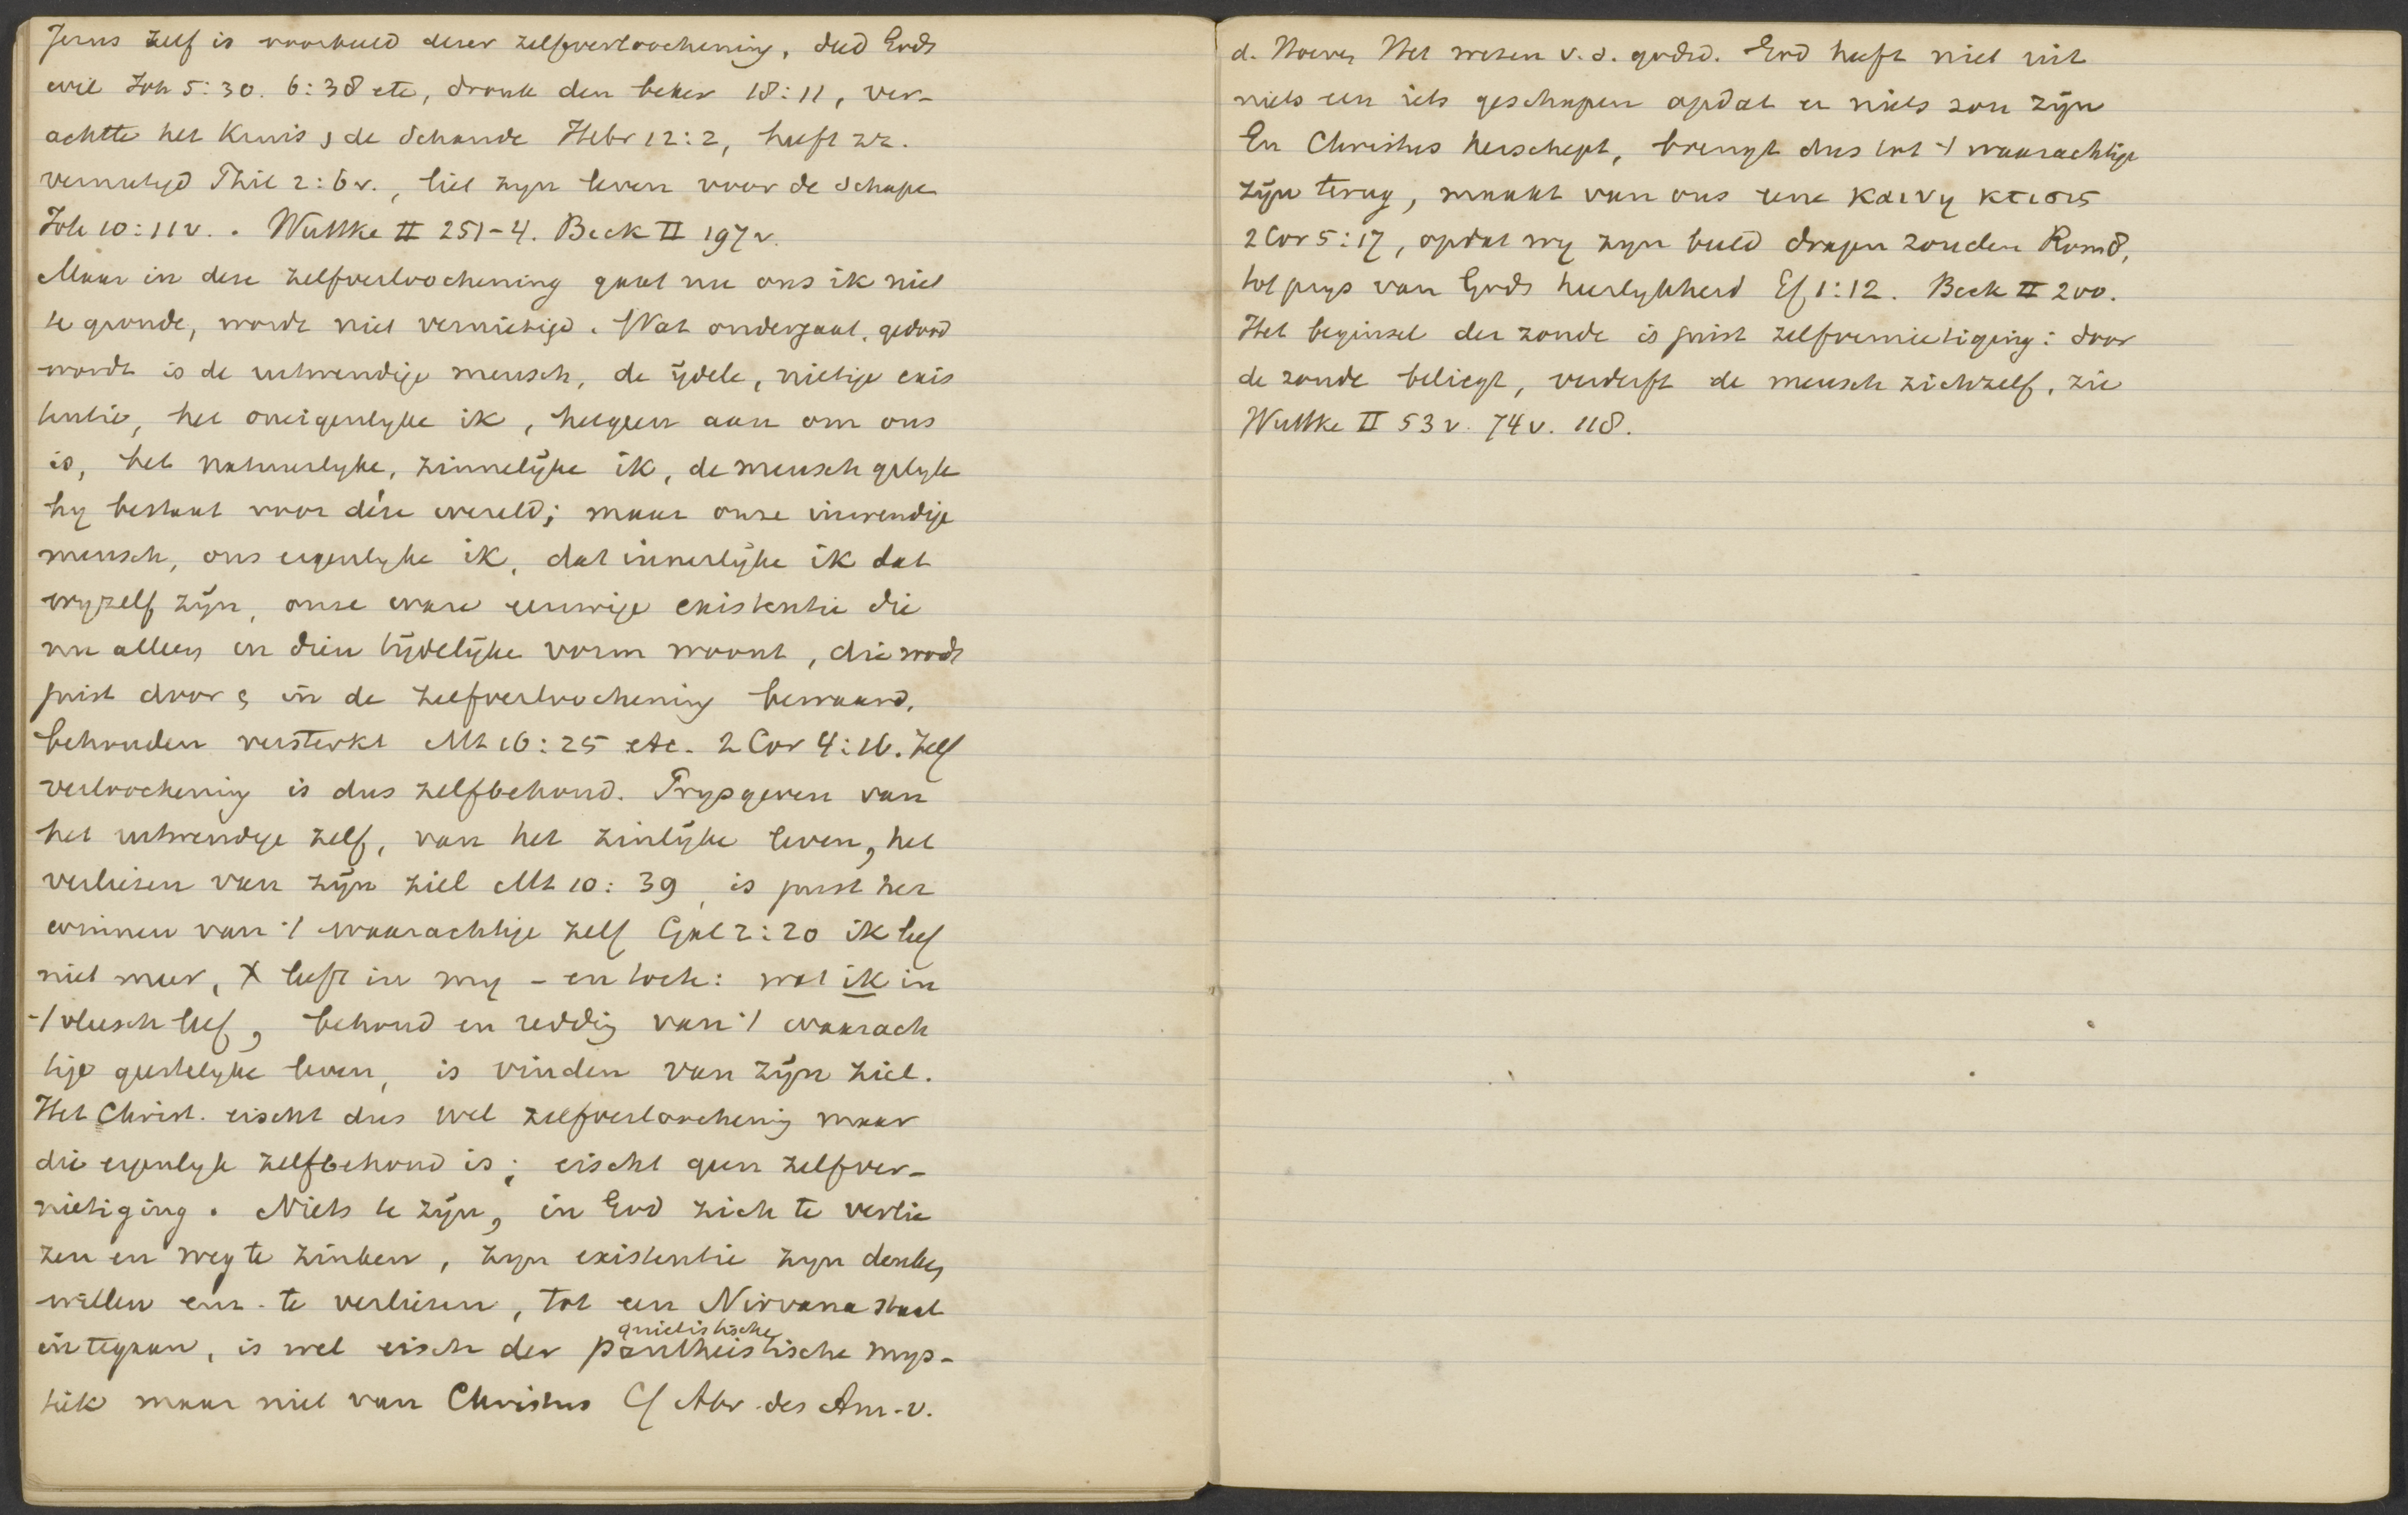 Jezus zelf is voorbeeld dezer zelfverloochening, deed Gods
wil Joh 5:30. 6:38 etc, dronk den beker 18:11, ver-
achtte het Kruis, de schande Hebr 12:2, heeft zz.
vernietigd Phil 2:6v., liet zyn leven voor de schapen
Joh 10:11v.. Wuttke II 251-4. Beck II 197v.
Maar in deze zelfverloochening gaat nu ons ik niet
te gronde, wordt niet vernietigd. Wat ondergaat, gedood
wordt is de uitwendige mensch, de ijdele, nietige exis
tentie, het oneigenlyke ik, hetgeen aan om ons
is, het natuurlyke, zinnelijke ik, de mensch gelyk
hy bestaat voor dése wereld; maar onze inwendige
mensch, ons eigenlyke ik, dat innerlijke ik dat
wyzelf zijn, onze ware eeuwige existentie die
nu alleen in dien tijdelijke vorm woont, die wordt
juist door & in de zelfverloochening bewaard,
behouden versterkt Mt 16:25 etc. 2 Cor 4:16. Zelf
verloochening is dus zelfbehoud. Prysgeven van
het uitwendige zelf, van het zinlijke leven, het
verliezen van zijn ziel Mt 10:39, is juist het
winnen van 't waarachtige zelf Gal 2:20 ik leef
niet meer, X leeft in my - en toch: wat ik in
't vleesch leef, behoud en redding van 't waarach
tige geestelyke leven, is vinden van zijn ziel.
Het Christ. eischt dus wel zelfverloochening maar
die eigenlyk zelfbehoud is; eischt geen zelfver-
nietiging. Niets te zijn, in God zich te verlie
zen en weg te zinken, zyn existentie zyn denken
willen enz. te verliezen, tot een Nirvana staat
quietistische
in te gaan, is wel eisch der pantheistische mys-
tiek maar niet van Christus Cf Abr. des Am. v.
d. Hoeven Het wezen v. d. godsd. God heeft niet uit
niets een iets geschapen opdat er niets zou zijn
En Christus herschept, brengt dus tot 't waarachtige
zijn terug, maakt van ons eene καινη κτισις
2 Cor 5:17, opdat wy zyn beeld dragen zouden Rom 8,
tot prys van Gods heerlykheid Ef 1:12. Beck II 200.
Het beginsel der zonde is juist zelfvernietiging: door
de zonde beliegt, verderft de mensch zichzelf, zie
Wuttke II 53v. 74v. 118.